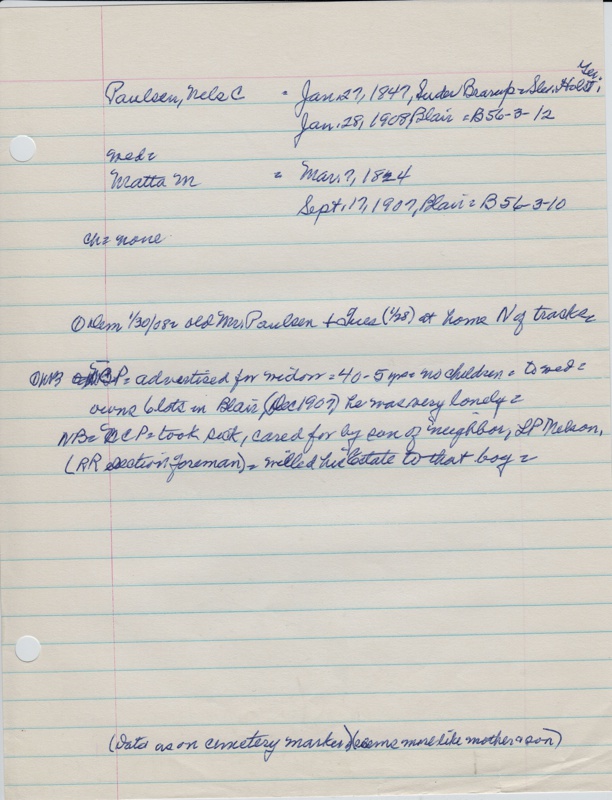 Ger.
Paulsen, Nels C = Jan. 27, 1847, Suder Brarup = Sles. Holst,
Jan. 28, 1908, Blair = B56-3-12
med =
Matta M = Mar. 7, 1824
Sept. 17, 1907, Blair = B56-3-10
ch = none
Dem 1/30/08 = old Mr. Paulsen + Tues (1/28) at home N of tracks =
NCP = advertised for widow = 40-5 = no children = to wed =
owns 6 lots in Blair (Dec 1907) he was very lonely =
NB = NCP = took sick, cared for by son of neighbor, LP Nelson,
(RR section foreman) = willed his Estate to that boy =
(Data as on cemetery marker) (seems more like mother & son)